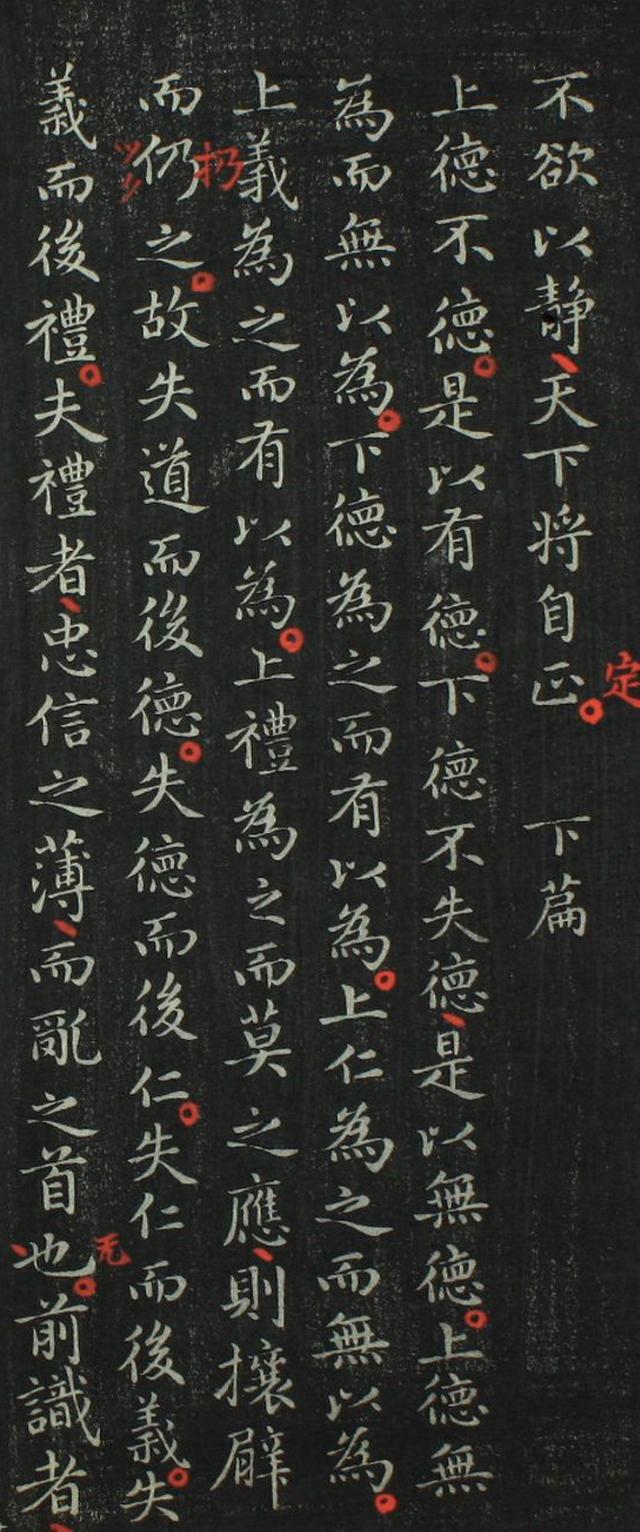 不欲以靜天下將自正 定 下篇
上德不德是以有德下德不失德是以無德上德無
為而無以為下德為之而有以為上仁為之而無以為
上義為之而有以為上禮為之而莫之應則攘臂
而仍扔之故失道而後德失德而後仁失仁而後義失
義而後禮夫禮者忠信之薄而亂之首也无前識者